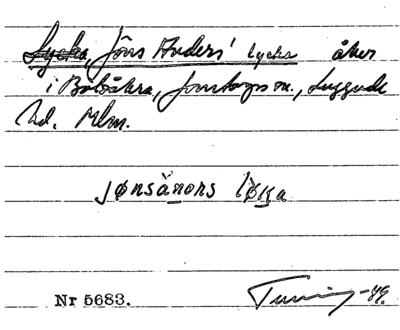 Lycka, Jöns Anders' lycka åker
i Bölsåkra, Jonstorps sn., Luggude
hd. Mlm.
jønsänₒns lø̀ka
Nr 5683.
-49.